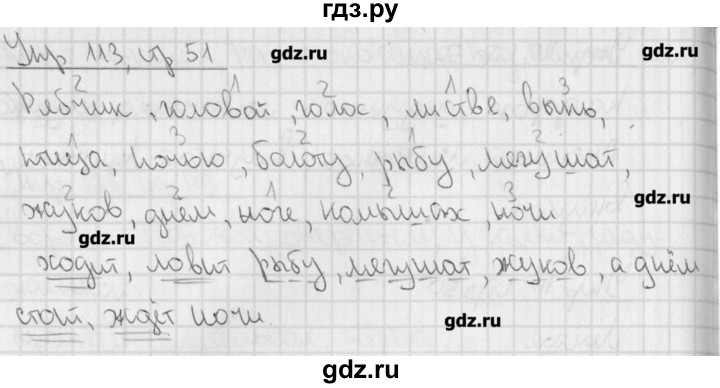 гдз.ру
Упр 113, стр 51
gdz.ru gdz.ru
2 1 2 1 3
Рябчик, головой, голос, листве, выпь,
1 3 2 1 2
птица, ночью, болоту, рыбу, лягушат,
gdz.ru
2 2 1 2 3
жуков, днём, ноге, камышах, ночи
gdz.ru
ходит, ловит рыбу, лягушат, жуков, а днём
стоит, ждёт ночи.
gdz.ru
gdz.ru